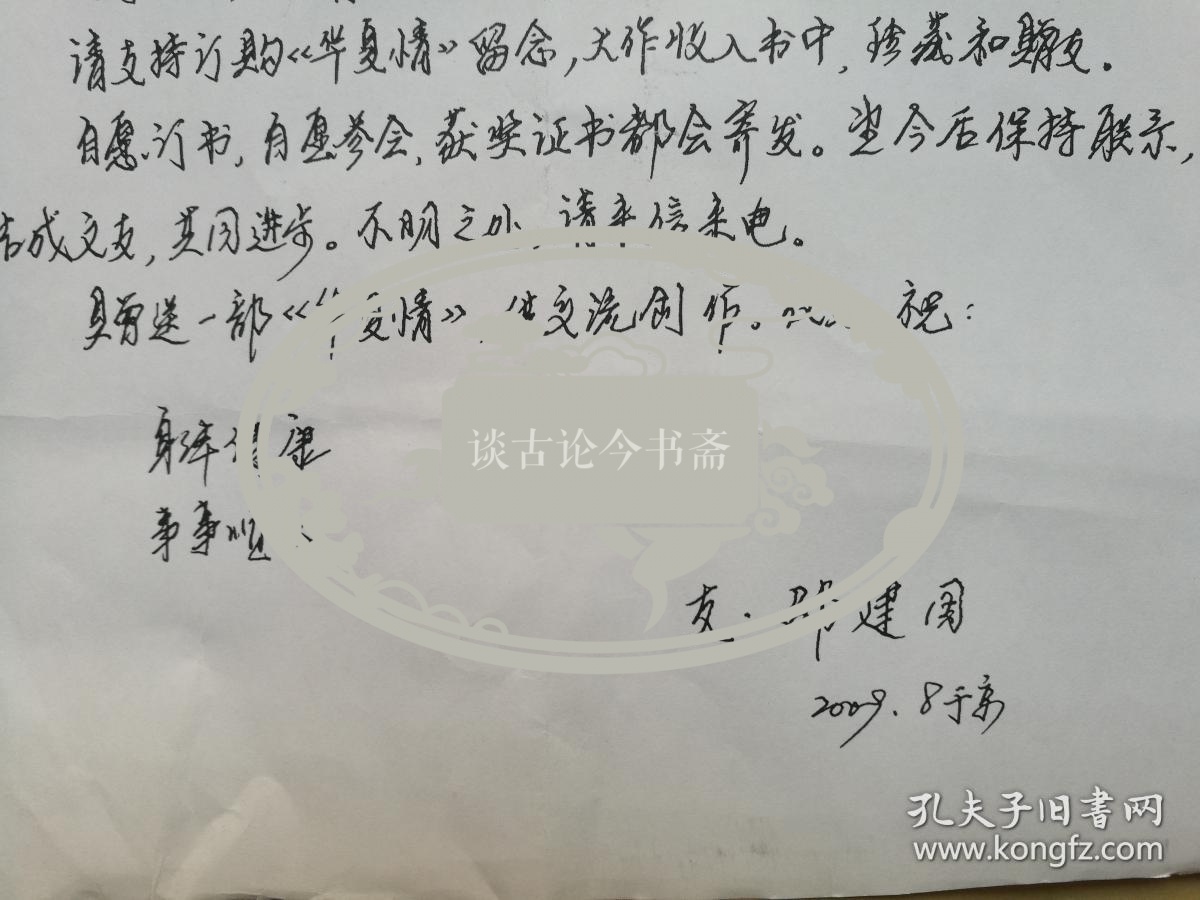 请支持订购《华夏情》留念，大作收入书中，珍藏和赠友。
自愿订书，自愿参会，获奖证书都会寄发。望今后保持联系，
结成文友，共同进步。不明之处，请来信来电。
赠送一部《华夏情》，供交流创作。 祝：
身体健康
事事顺
谈古论今书斋
友：邵建国
2009.8于京
孔夫子旧書网
www.kongfz.com